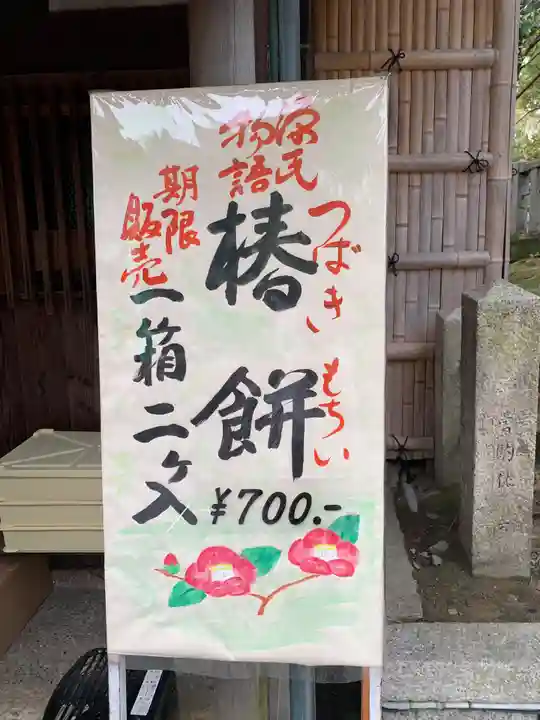 源氏
物語
つばき
椿
もちい
餅
期限
販売
一箱二ヶ入
¥700.-